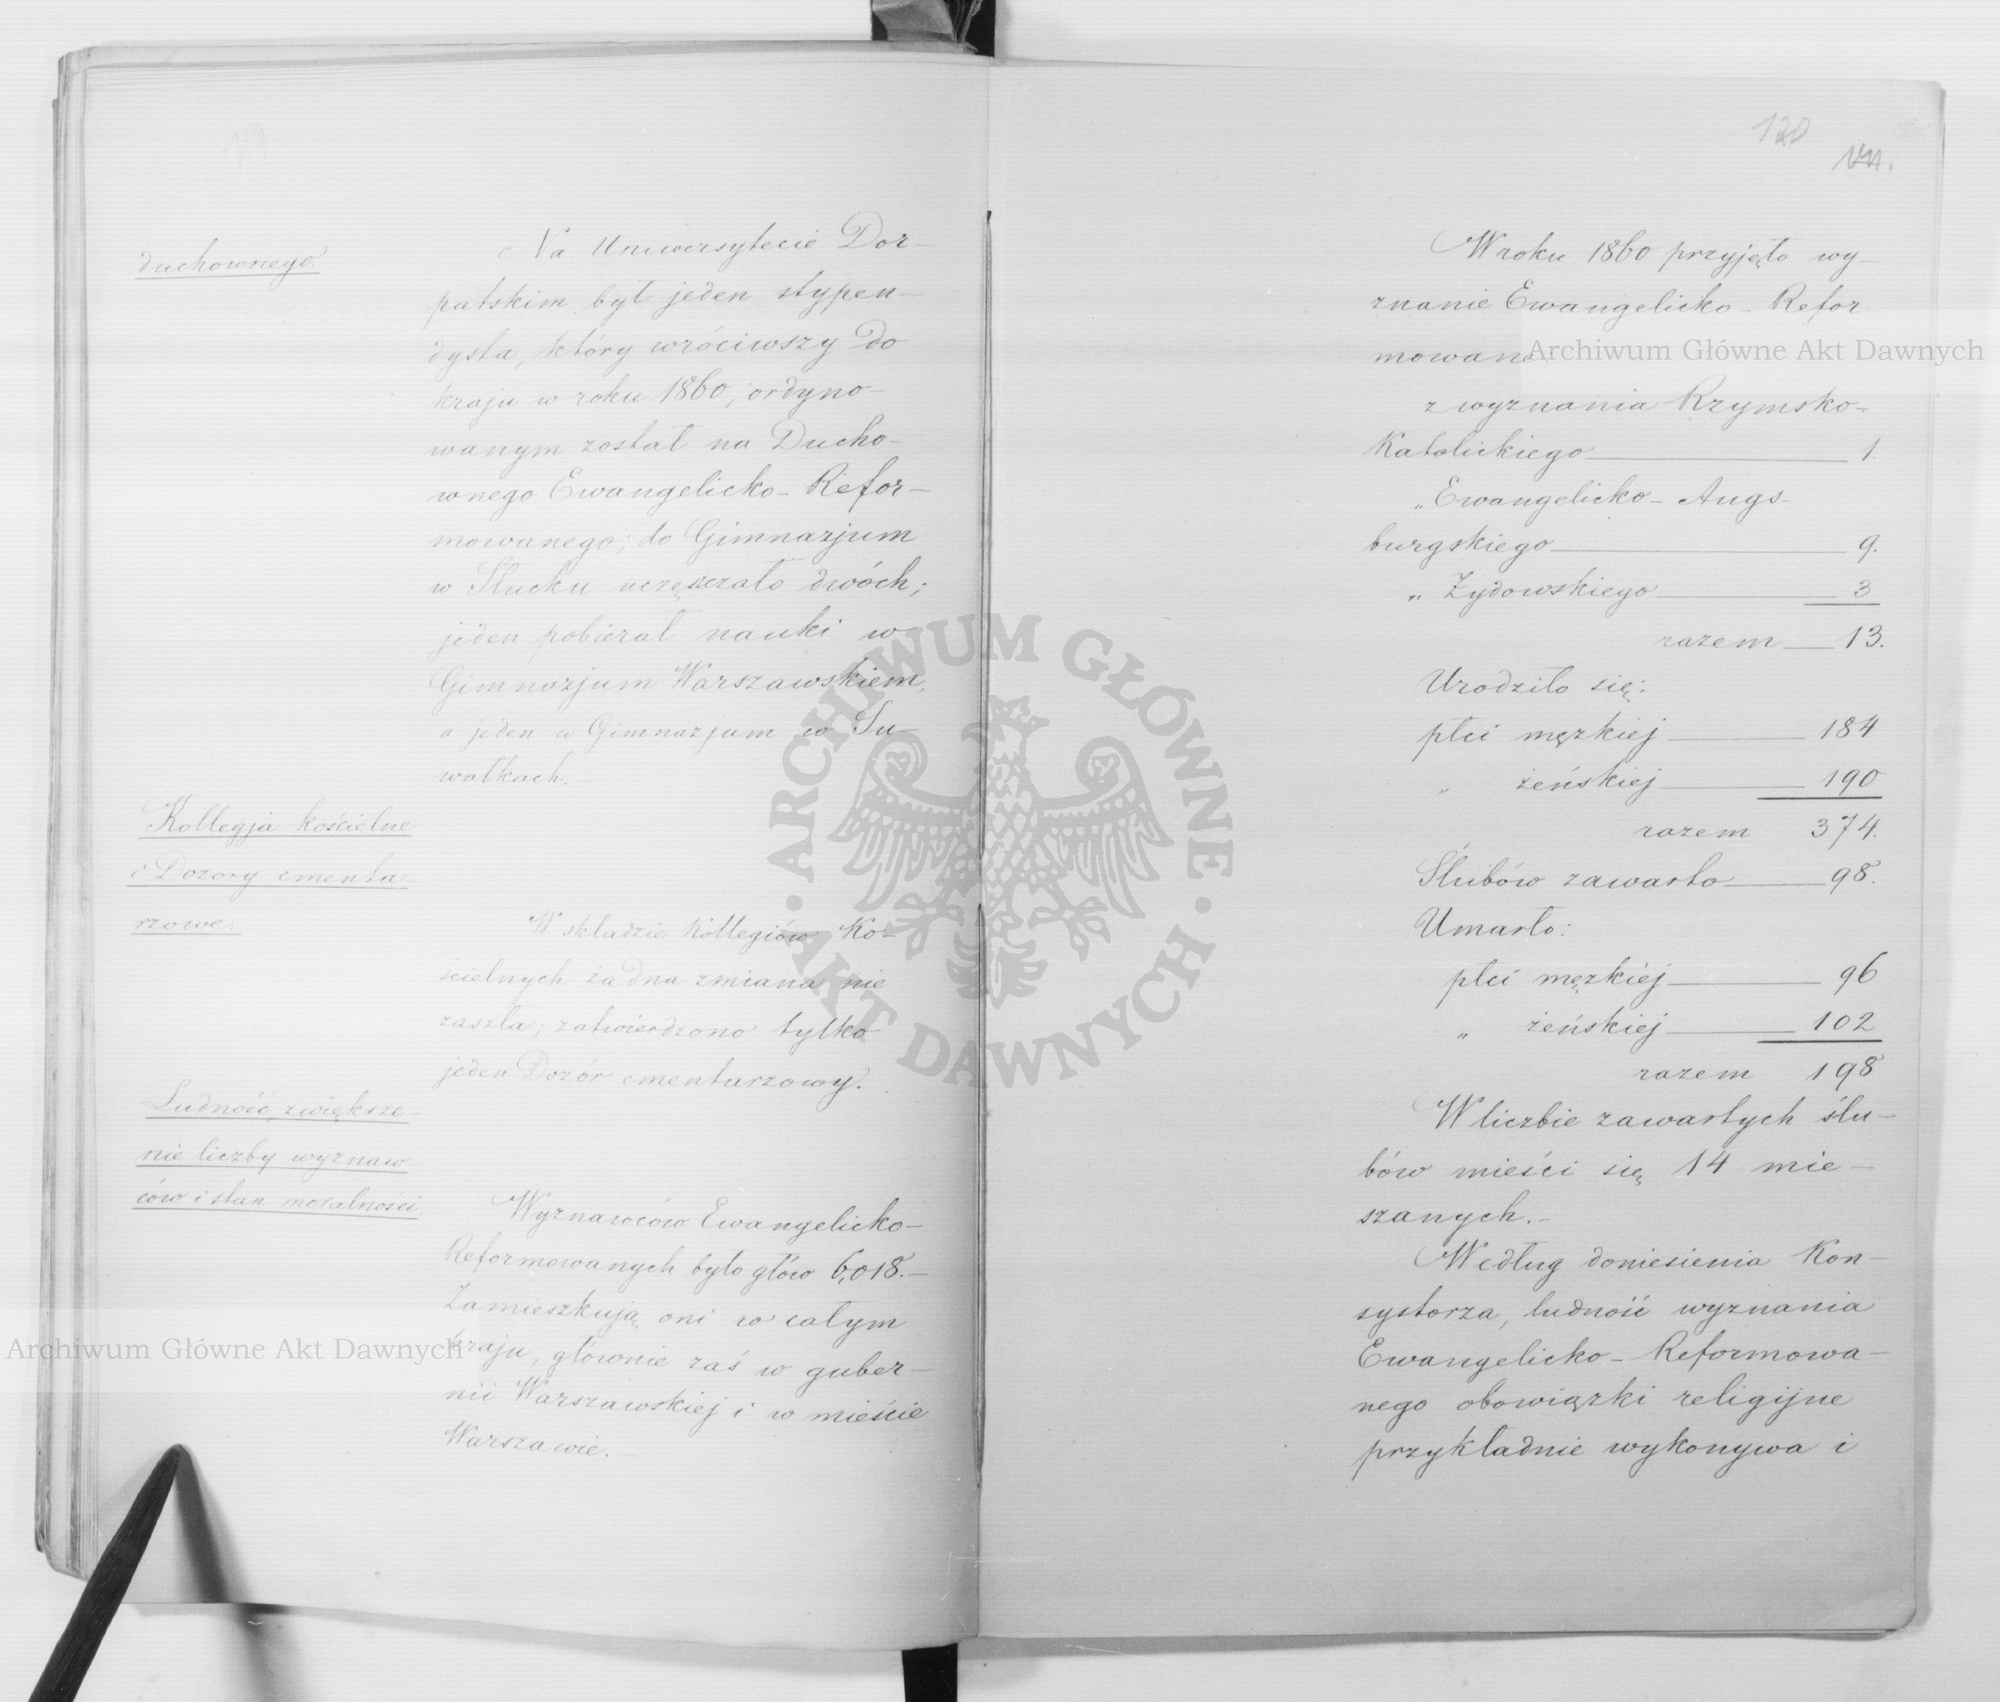 duchownego.
Na Uniwersytecie Dor-
patskim był jeden stypen-
dysta, który wróciwszy do
kraju w roku 1860, ordyno-
wanym został na Ducho-
wnego Ewangelicko-Refor-
mowanego; do Gimnazjum
w Słucku uczęszczało dwóch;
jeden pobierał nauki w
Gimnazjum Warszawskiem,
a jeden w Gimnazjum w Su-
wałkach.-
Kollegja kościelne
i Dozory cmenta-
rzowe.
W składzie Kollegiów Ko-
ścielnych żadna zmiana nie
zaszła; zatwierdzono tylko
jeden Dozór cmentarzowy.
Ludność, zwiększe-
nie liczby wyznaw
ców i stan moralności.
Wyznawców Ewangelicko-
Reformowanych było głów 6,018.-
Zamieszkują oni w całym
kraju, głównie zaś w guber-
nii Warszawskiej i w mieście
Warszawie.-
120
W roku 1860 przyjęło wy-
znanie Ewangelicko-Refor
mowane
z wyznania Rzymsko-
Katolickiego 1.
„ Ewangelicko-Augs-
burgskiego 9.
„ Żydowskiego 3
razem 13.
Urodziło się:
płci męzkiej 184
„ żeńskiej 190
razem 374.
Ślubów zawarto 98.
Umarło:
płci męzkiej 96
„ żeńskiej 102
razem 198
W liczbie zawartych ślu-
bów mieści się 14 mie-
szanych.-
Według doniesienia Kon-
systorza, ludność wyznania
Ewangelicko-Reformowa-
nego obowiązki religijne
przykładnie wykonywa i
Archiwum Główne Akt Dawnych
Archiwum Główne Akt Dawnych
ARCHIWUM GŁÓWNE
· AKT DAWNYCH ·